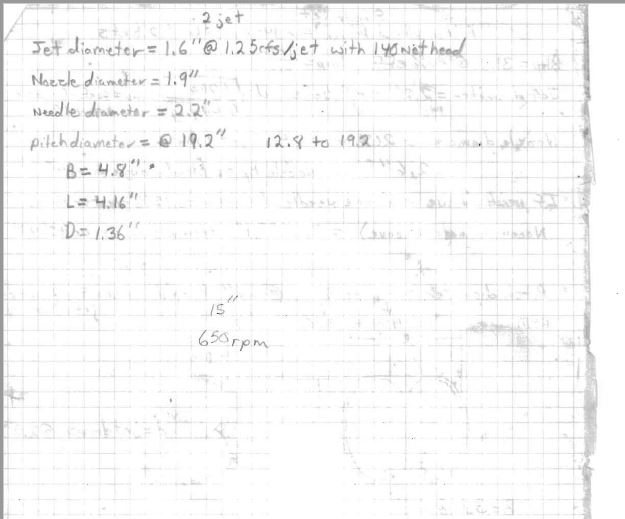 2 jet
Jet diameter = 1.6" @ 1.25cfs/jet with 140 Net head
Nozzle diameter = 1.9"
Needle diameter = 2.2"
pitch diameter = @ 19.2" 12.8 to 19.2
B = 4.8"
L = 4.16"
D = 1.36"
15"
650 rpm